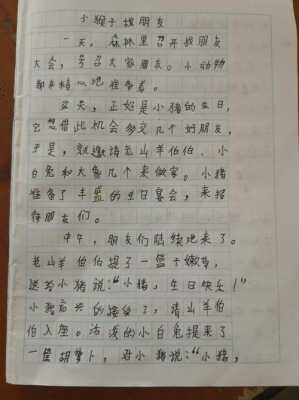 小猴子找朋友
一天，森林里召开找朋友
大会，号召大家交朋友。小动物
都在精心地准备着。
这天，正好是小猪的生日，
它想借此机会多交几个好朋友，
于是，就邀请老山羊伯伯、小
白兔和大象几个来做客。小猪
准备了丰盛的生日宴会，来招
待朋友们。
中午，朋友们陆续地来了。
老山羊伯伯提了一篮子嫩草，
送给小猪说：“小猪，生日快乐！”
小猪高兴的接过了，请山羊伯
伯入座。活泼的小白兔提来了
一筐胡萝卜，对小猪说：“小猪，